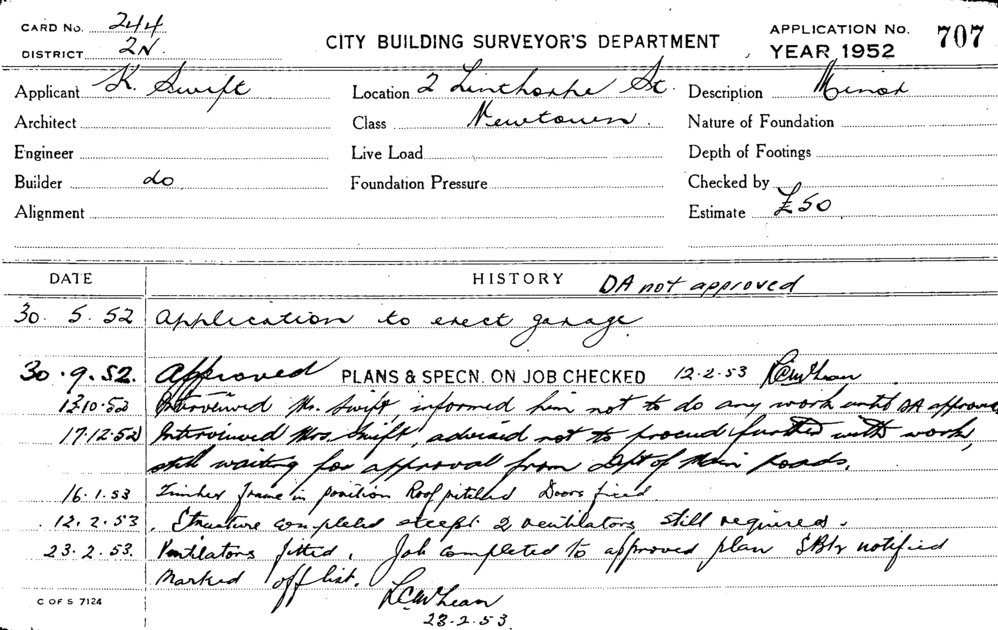 CARD No. 244
DISTRICT 2N.
CITY BUILDING SURVEYOR'S DEPARTMENT
APPLICATION No. 707
YEAR 1952
Applicant K. Swift Location 2 Linthorpe St. Description Minor
Architect Class Newtown. Nature of Foundation
Engineer Live Load Depth of Footings
Builder do Foundation Pressure Checked by
Alignment Estimate £50
DATE HISTORY DA not approved
30. 5. 52 Application to erect garage
30.9.52. Approved PLANS & SPECN. ON JOB CHECKED 12.2.53
10.52 Interviewed Mr. Swift, informed him not to do any work until DA approved
17.12.52 Interviewed Mrs Swift, advised not to proceed further with work,
still waiting for approval from Dept of Main Roads.
16.1.53 Timber frame in position Roof pitched Doors fixed
12.2.53. Structure completed except 2 ventilators still required.
23.2.53. Ventilators fitted. Job completed to approved plan notified
Marked off list.
C OF S 7124
23.2.53.